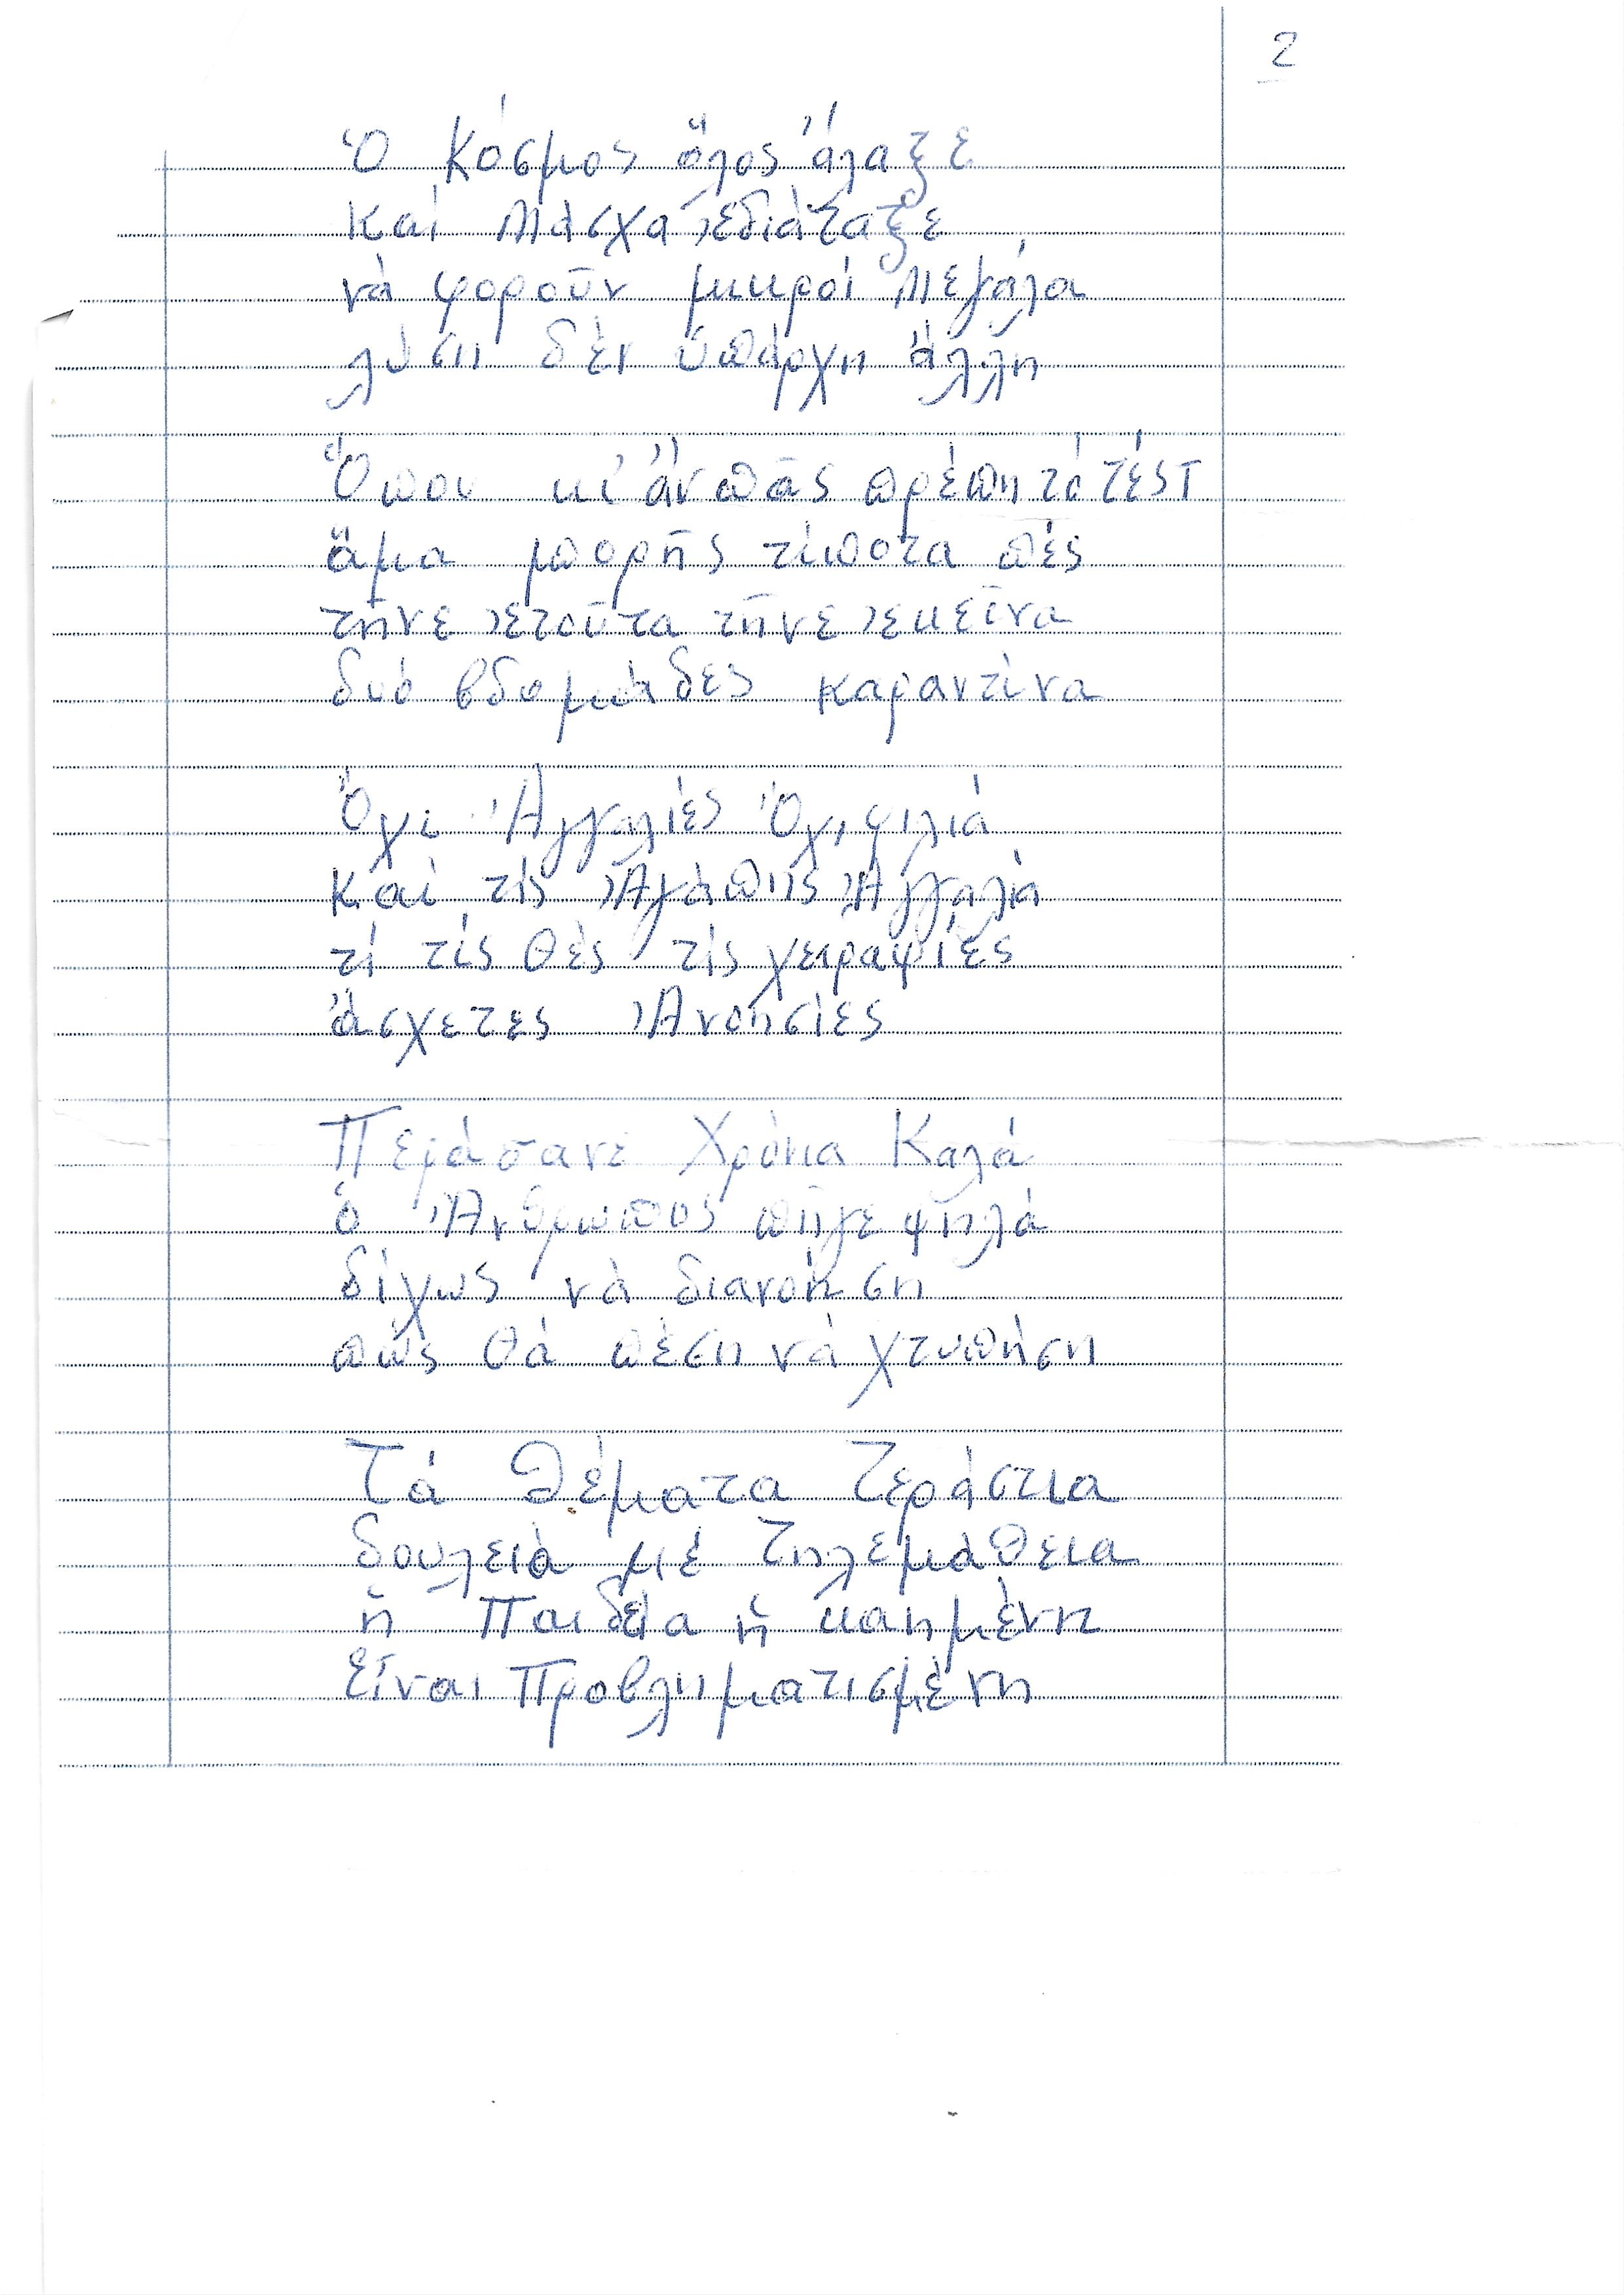 2
Ὁ Κόσμος ὅλος ἄλαξε
καί Μάσχα ἐδιάταξε
νά φοροῦν μικροί Μεγάλα
λύση δέν ὑπάρχη ἄλλη
Ὅπου κι' ἄν πᾶς πρέπη τό τέστ
ἅμα μπορῆς τίποτα πές
τῆνε ἐτοῦτα τῆνε ἐκεῖνα
δυό βδομάδες καραντίνα
Ὄχι Ἀγγαλιές Ὄχι φιλιά
καί τίς Ἀγάπης Ἀγγαλιά
τί τίς θές τίς χειραψίες
ἄσχετες Ἀνοησίες
Περάσανε Χρόνια Καλά
ὁ Ἄνθρωπος πῆγε ψηλά
δίχως νά διανοήση
πῶς θά πέση νά χτυπήση
Τά Θέματα Τεράστια
δουλειά μέ Τηλεμάθεια
ἥ Παιδεία ἥ καημένη
Εἶναι Προβληματισμένη